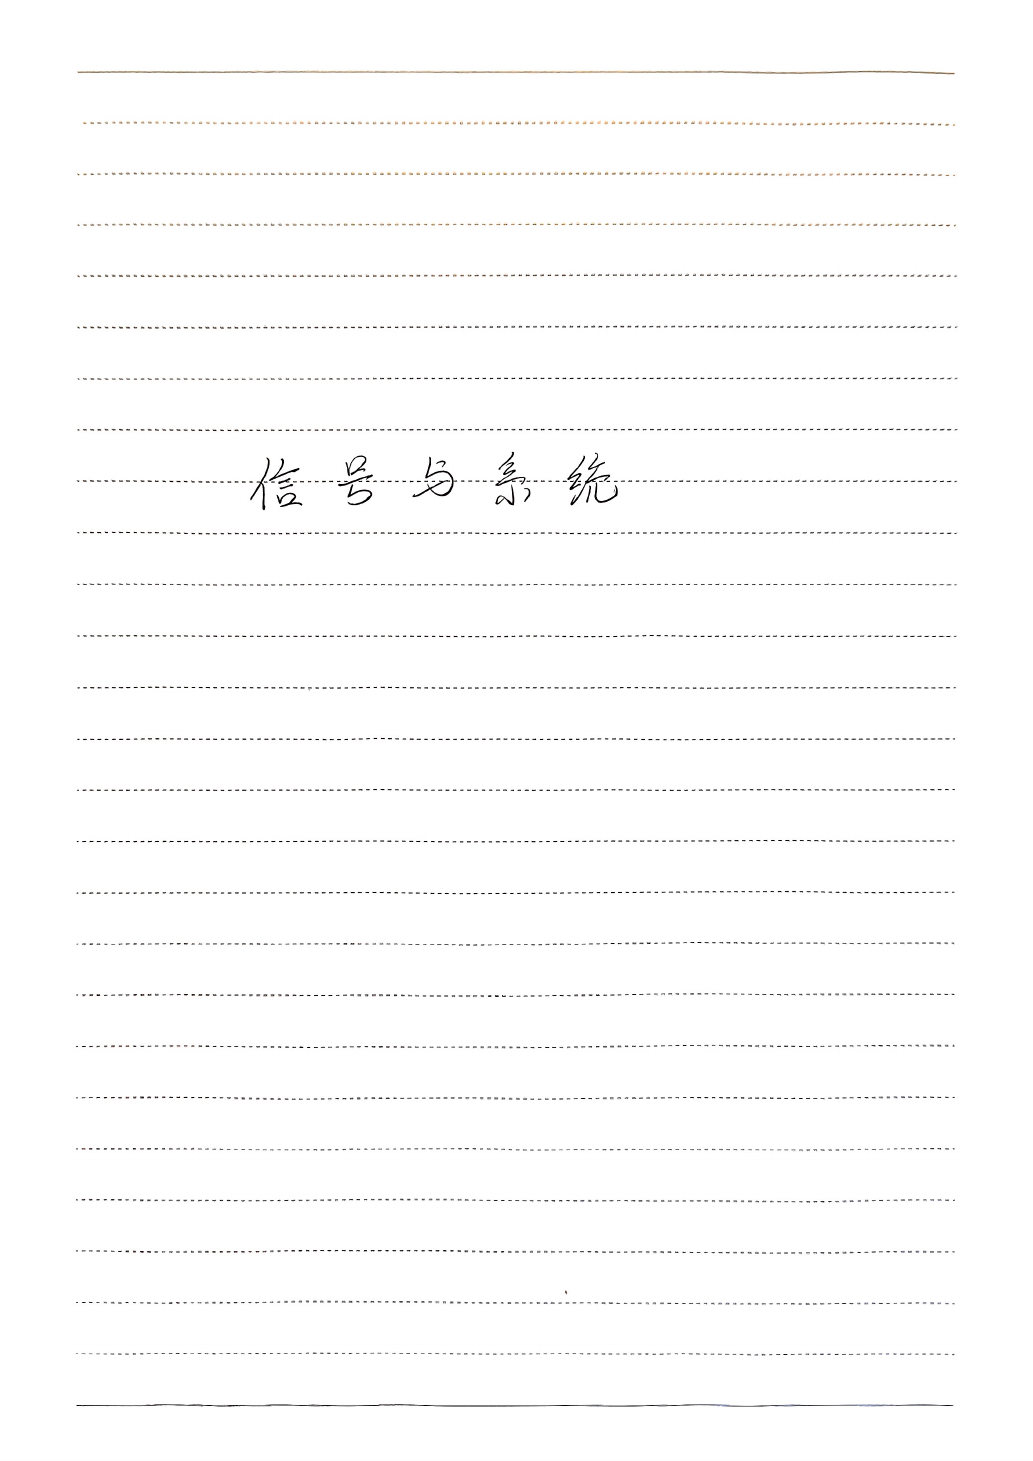 信号与系统